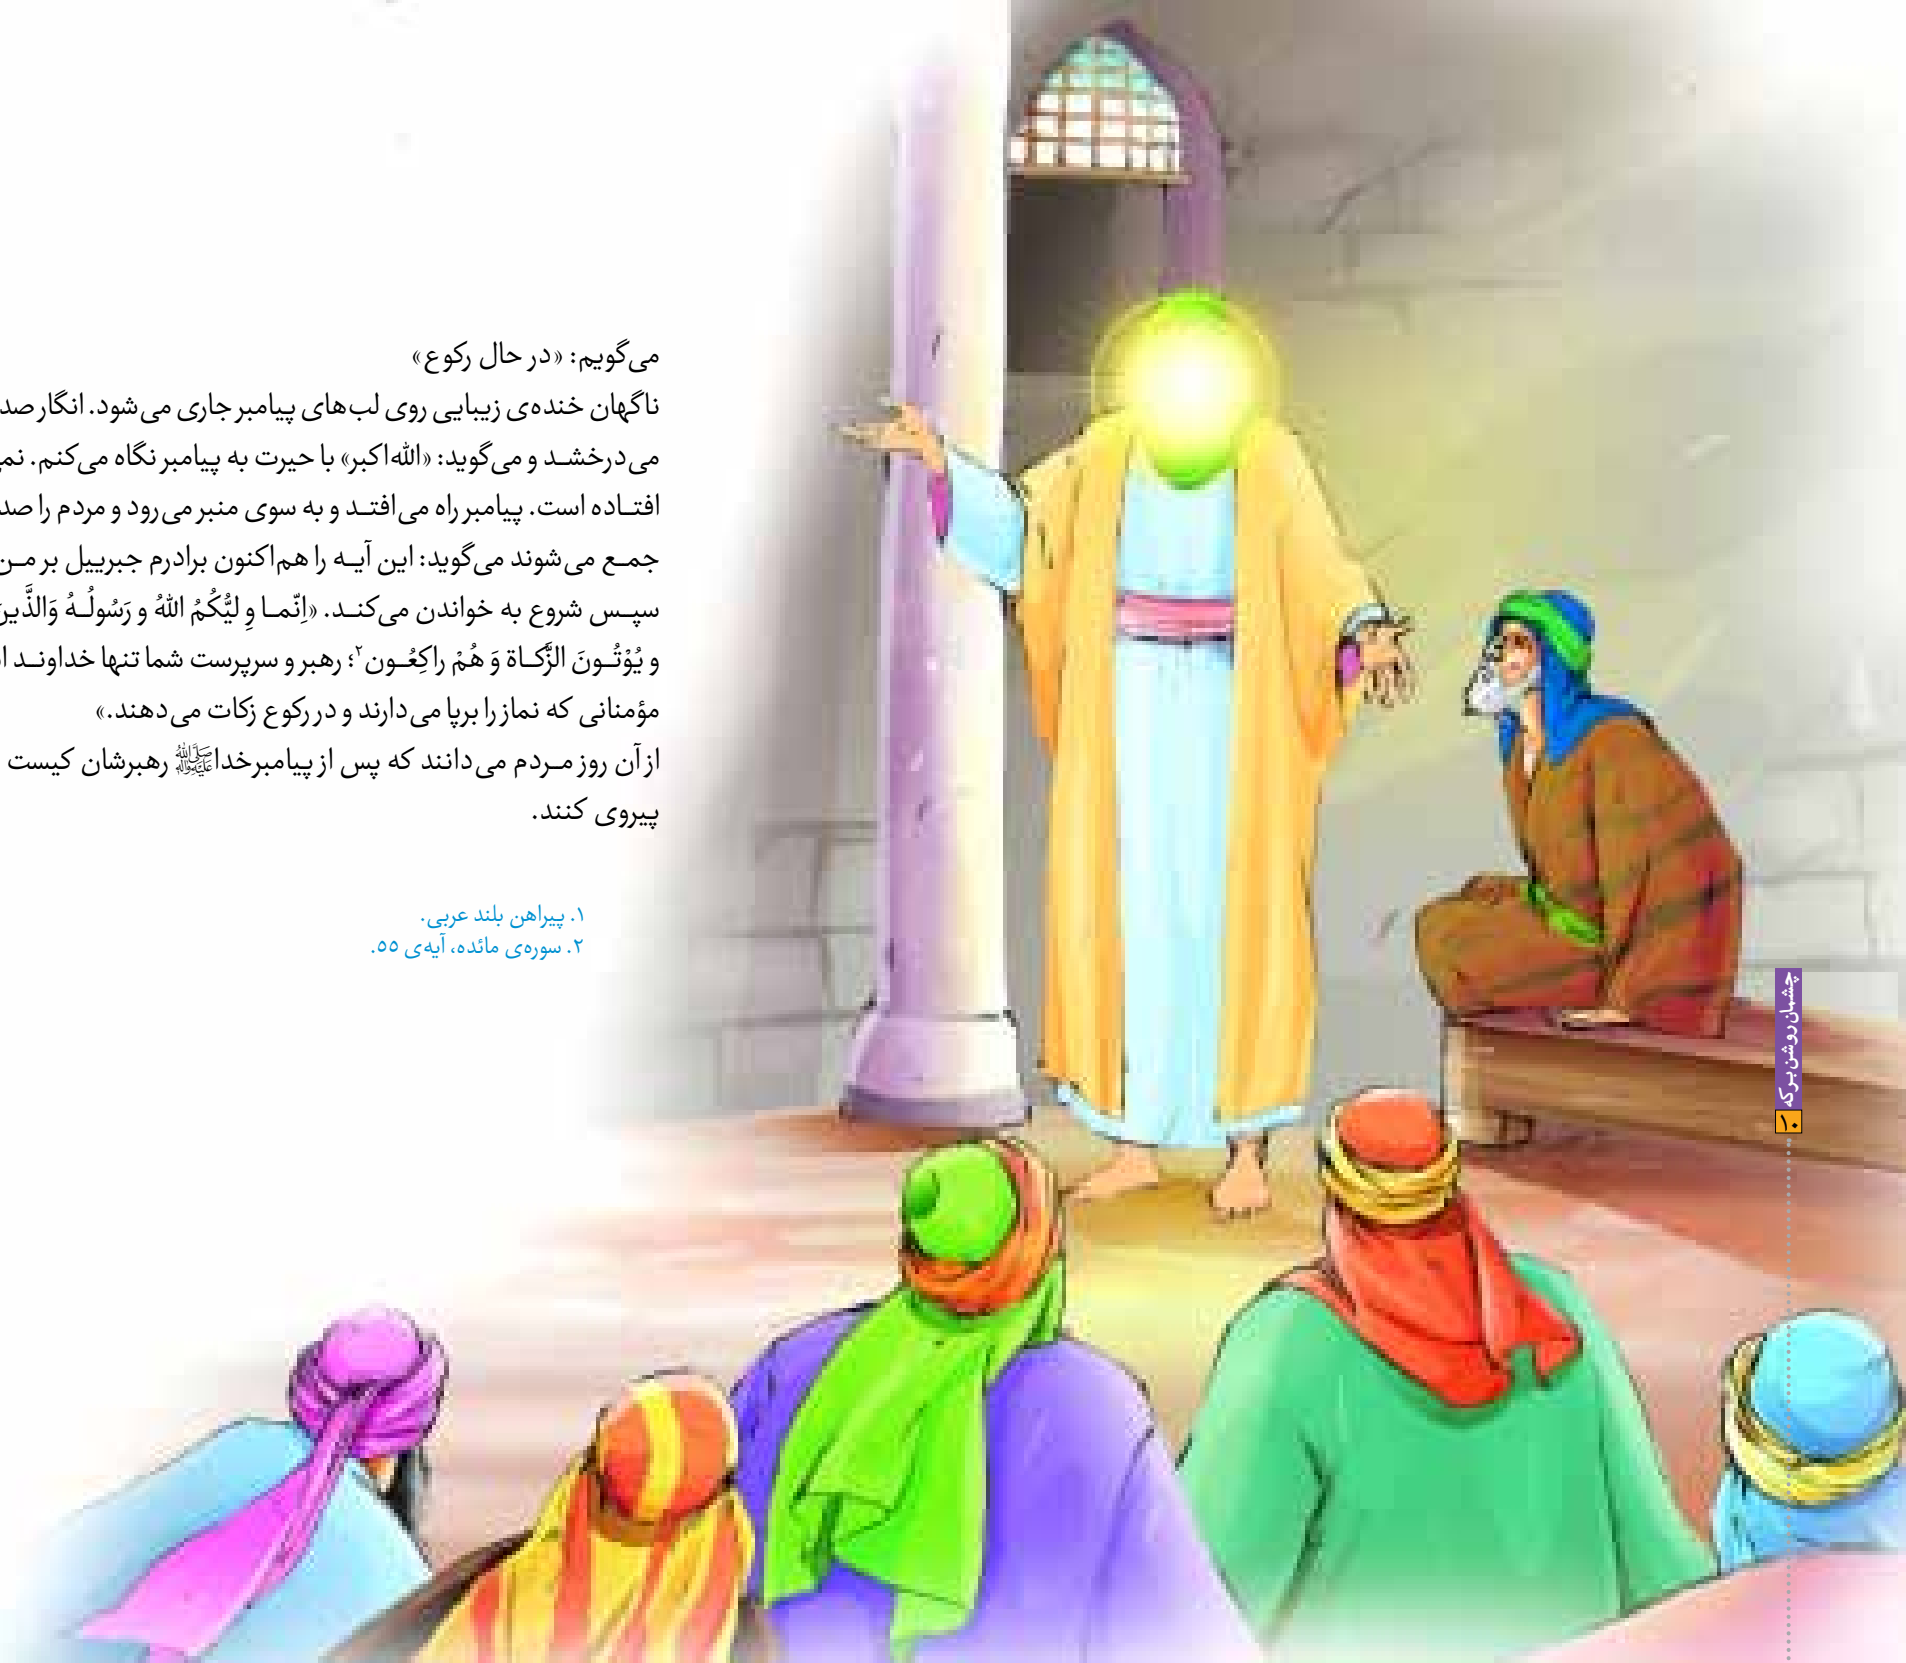 می‌گویم: «در حال رکوع»
ناگهان خنده‌ی زیبایی روی لب‌های پیامبر جاری می‌شود. انگار صد
می‌درخشد و می‌گوید: «الله‌اکبر» با حیرت به پیامبر نگاه می‌کنم. نم
افتاده است. پیامبر راه می‌افتد و به سوی منبر می‌رود و مردم را صد
جمع می‌شوند می‌گوید: این آیه را هم‌اکنون برادرم جبرییل بر من
سپس شروع به خواندن می‌کند. «اِنّما وِ لیُّکُمُ اللهُ و رَسُولُهُ وَالذَّین
و یُوْتُونَ الزَّکاة وَ هُمْ راکِعُون۲؛ رهبر و سرپرست شما تنها خداوند ا
مؤمنانی که نماز را برپا می‌دارند و در رکوع زکات می‌دهند.»
از آن روز مردم می‌دانند که پس از پیامبرخداﷺ رهبرشان کیست
پیروی کنند.
۱. پیراهن بلند عربی.
۲. سوره‌ی مائده، آیه‌ی ۵۵.
چشمان روشن برکه
۱۰